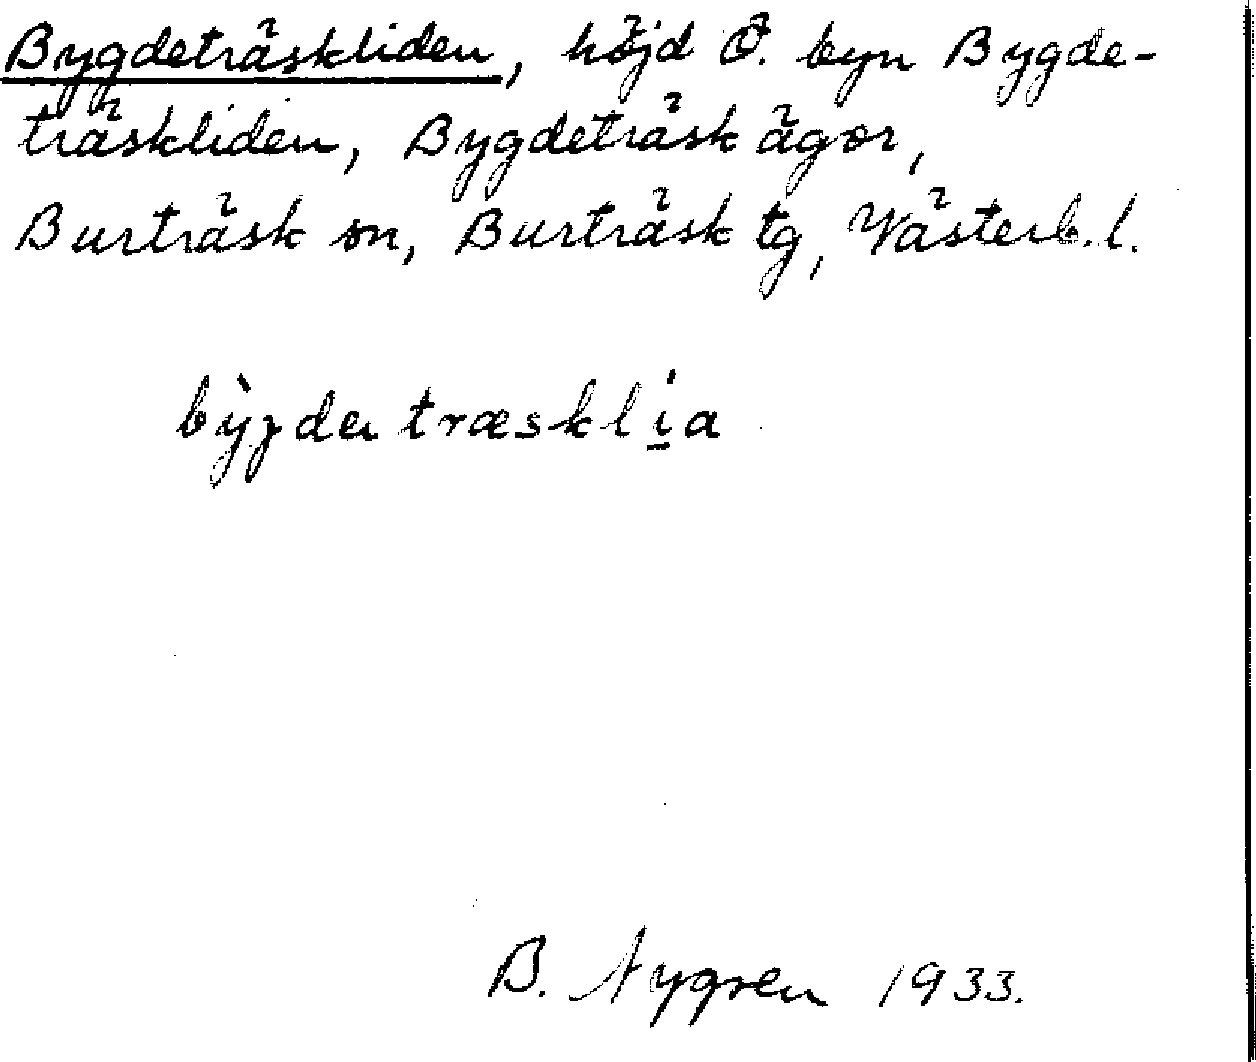 Bygdeträskliden, höjd Ö. byn Bygde-
träskliden, Bygdeträsk ägor,
Burträsk sn, Burträsk tg, Västerb. l.
bỳgdeträsklia
B. Nygren 1933.